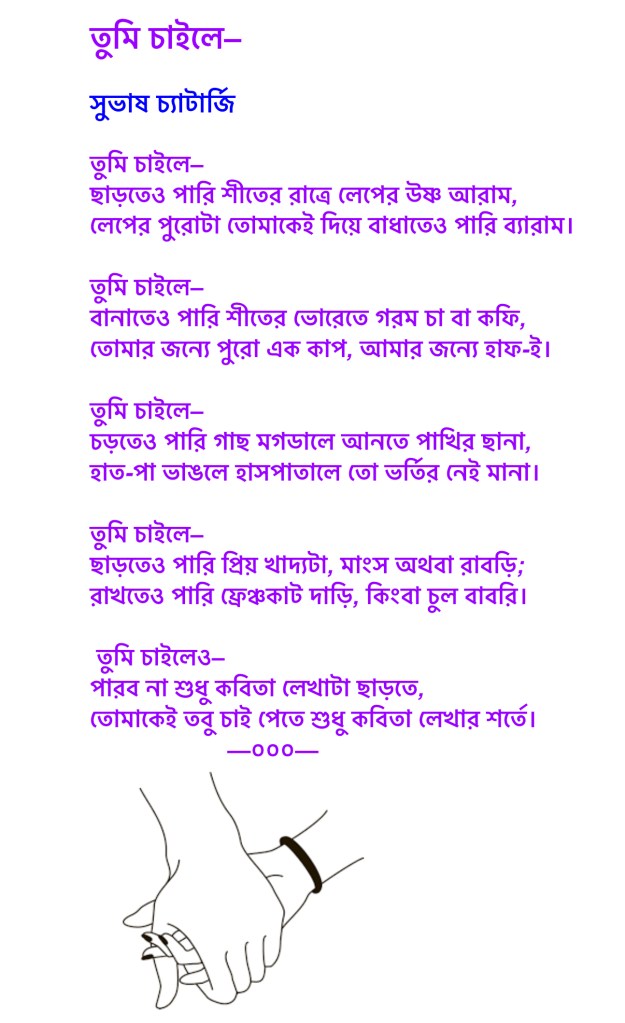 তুমি চাইলে–
সুভাষ চ্যাটার্জি
তুমি চাইলে–
ছাড়তেও পারি শীতের রাত্রে লেপের উষ্ণ আরাম,
লেপের পুরোটা তোমাকেই দিয়ে বাধাতেও পারি ব্যারাম।
তুমি চাইলে–
বানাতেও পারি শীতের ভোরেতে গরম চা বা কফি,
তোমার জন্যে পুরো এক কাপ, আমার জন্যে হাফ-ই।
তুমি চাইলে–
চড়তেও পারি গাছ মগডালে আনতে পাখির ছানা,
হাত-পা ভাঙলে হাসপাতালে তো ভর্তির নেই মানা।
তুমি চাইলে–
ছাড়তেও পারি প্রিয় খাদ্যটা, মাংস অথবা রাবড়ি;
রাখতেও পারি ফ্রেঞ্চকাট দাড়ি, কিংবা চুল বাবরি।
তুমি চাইলেও–
পারব না শুধু কবিতা লেখাটা ছাড়তে,
তোমাকেই তবু চাই পেতে শুধু কবিতা লেখার শর্তে।
—০০০—